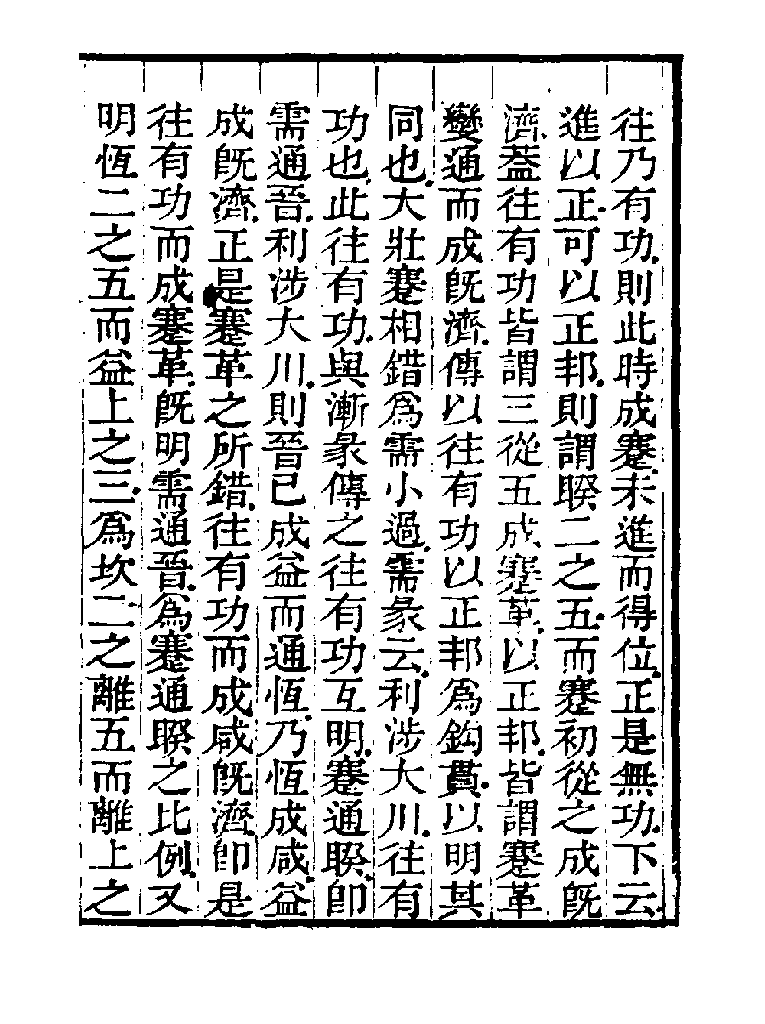 往乃有功則此時成蹇未進而得位正是無功下云
進以正可以正邦則謂睽二之五而蹇初從之成旣
濟葢往有功皆謂三從五成蹇革以正邦皆謂蹇革
變通而成旣濟傳以往有功以正邦爲鈎貫以明其
同也大壯蹇相錯爲需小過需彖云利涉大川往有
功也此往有功與漸彖傳之往有功互明蹇通睽卽
需通晉利涉大川則晉已成益而通恆乃恆成咸益
成旣濟正是蹇革之所錯往有功而成咸旣濟卽是
往有功而成蹇革旣明需通晉爲蹇通睽之比例又
明恆二之五而益上之三爲坎二之離五而離上之